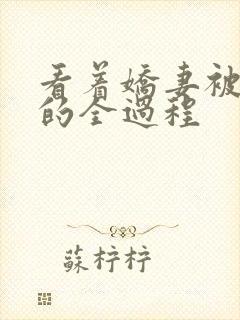 看着嬌妻被
的全過程
蘇梓梓